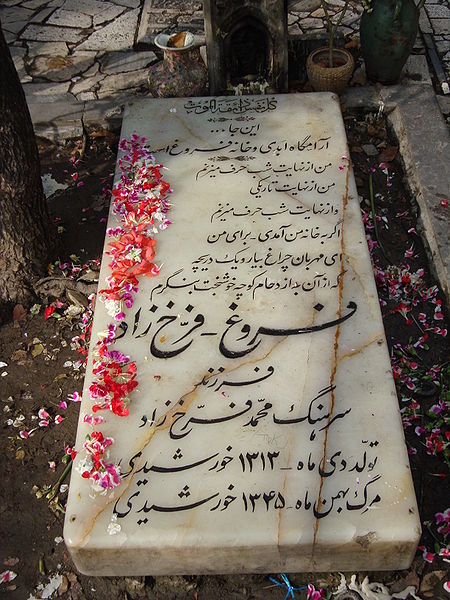 كل نفس ذائقة الموت
این جا ...
آرامگاه ابدی و خانه فروغ است
من از نهایت شب حرف میزنم
من از نهایت تاریکی
و از نهایت شب حرف میزنم
اگر به خانه من آمدی - برای من
ای مهربان چراغ بیار و یک دریچه
که از آن به ازدحام کوچه خوشبخت بنگرم
فروغ - فرّخ زاد
فرزند
سرهنگ محمّد فرّخ زاد
تولّد دی ماه - ۱۳۱۳ خورشیدی
مرگ بهمن ماه - ۱۳۴۵ خورشیدی